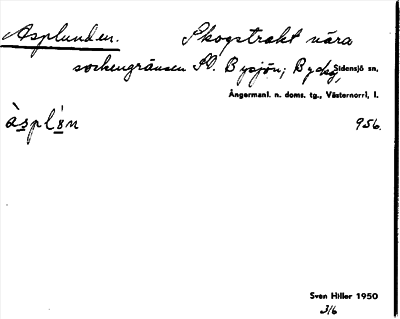 Asplunden. Skogstrakt nära
sockengränsen SO. Bysjön; Byckg, Sidensjö sn,
Ångermanl. n. doms. tg., Västernorrl. l.
àspl'ən 956.
Sven Hiller 1950
3/6